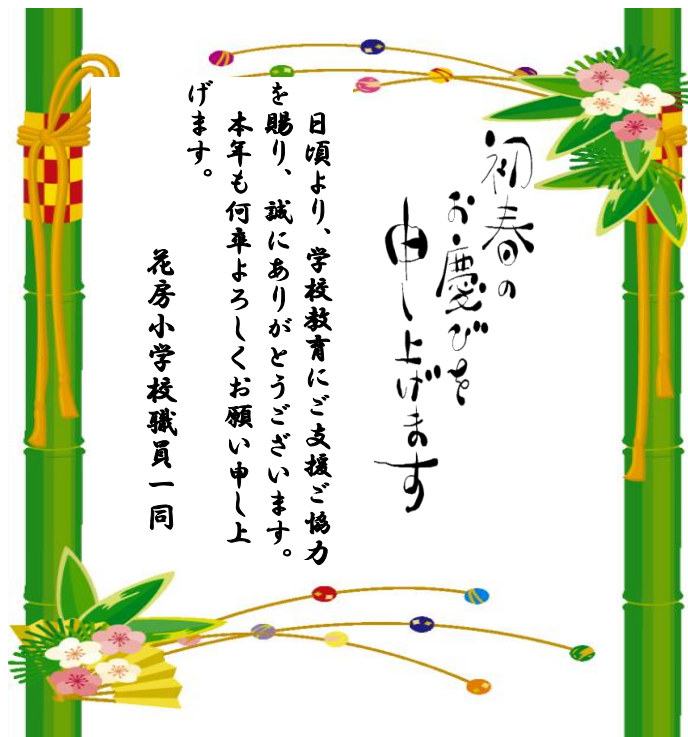 初春の
お慶びを
申し上げます
日頃より、学校教育にご支援ご協力
を賜り、誠にありがとうございます。
本年も何卒よろしくお願い申し上
げます。
花房小学校職員一同